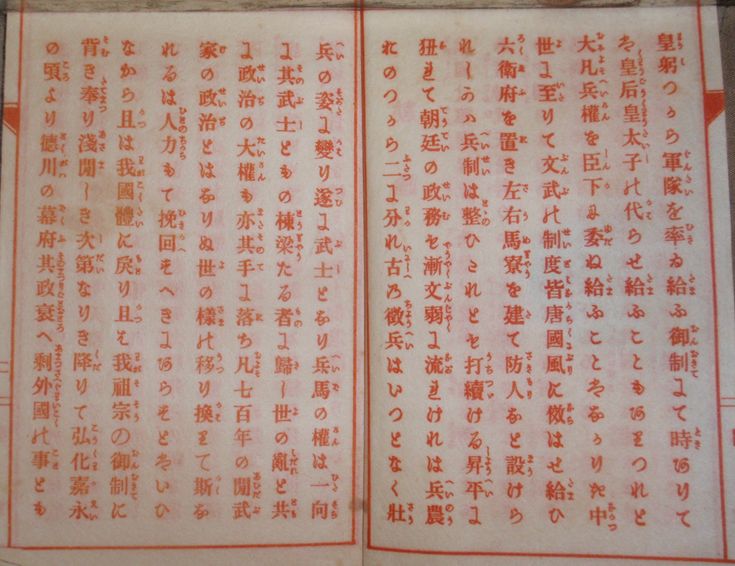 皇躬つから軍隊を率ゐ給ふ御制にて時ありて
は皇后皇太子の代らせ給ふこともありつれと
大凡兵權を臣下に委ね給ふことはなかりき中
世に至りて文武の制度皆唐國風に傚はせ給ひ
六衛府を置き左右馬寮を建て防人なと設けら
れしかは兵制は整ひたれとも打續ける昇平に
狃れて朝廷の政務も漸文弱に流れけれは兵農
おのつから二に分れ古の徴兵はいつとなく壯
兵の姿に變り遂に武士となり兵馬の權は一向
に其武士ともの棟梁たる者に歸し世の亂と共
に政治の大權も亦其手に落ち凡七百年の間武
家の政治とはなりぬ世の樣の移り換りて斯な
れるは人力もて挽回すへきにあらすとはいひ
なから且は我國體に戻り且は我祖宗の御制に
背き奉り淺間しき次第なりき降りて弘化嘉永
の頃より徳川の幕府其政衰へ剩外國の事とも